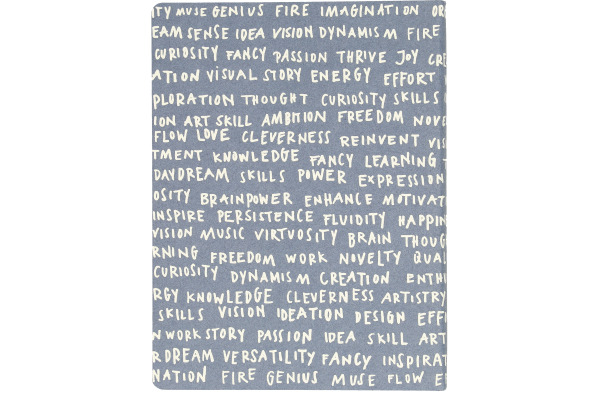 ITY MUSE GENIUS FIRE IMAGINATION OR
EAM SENSE IDEA VISION DYNAMISM FIRE
CURIOSITY FANCY PASSION THRIVE JOY CRE
ATION VISUAL STORY ENERGY EFFORT
PLORATION THOUGHT CURIOSITY SKILLS
ION ART SKILL AMBITION FREEDOM NOVE
FLOW LOVE CLEVERNESS REINVENT VIS
TMENT KNOWLEDGE FANCY LEARNING
DAYDREAM SKILLS POWER EXPRESSION
OSITY BRAINPOWER ENHANCE MOTIVAT
INSPIRE PERSISTENCE FLUIDITY HAPPIN
VISION MUSIC VIRTUOSITY BRAIN THOUG
RNING FREEDOM WORK NOVELTY QUAL
CURIOSITY DYNAMISM CREATION ENTH
RGY KNOWLEDGE CLEVERNESS ARTISTRY
SKILLS VISION IDEATION DESIGN EFF
N WORK STORY PASSION IDEA SKILL ART
R DREAM VERSATILITY FANCY INSPIRAT
NATION FIRE GENIUS MUSE FLOW E